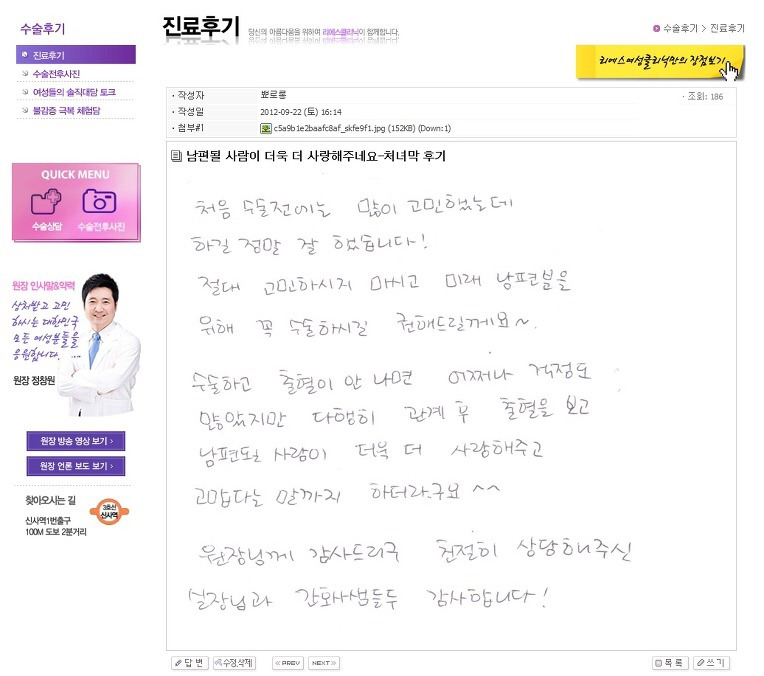 수술후기
진료후기
수술전후사진
여성들의 솔직대담 토크
불감증 극복 체험담
QUICK MENU
수술상담 수술전후사진
원장 인사말&약력
상처받고 고민
하시는 대한민국
모든 여성분들을
응원합니다.
원장 정창원
원장 방송 영상 보기 ›
원장 언론 보도 보기 ›
찾아오시는 길
신사역1번출구
100M 도보 2분거리
3호선
신사역
진료후기 당신의 아름다움을 위하여 리에스클리닉이 함께합니다.
수술후기 > 진료후기
리에스여성클리닉만의 장점보기
· 작성자 뽀로롱 · 조회: 186
· 작성일 2012-09-22 (토) 16:14
· 첨부#1 c5a9b1e2baafc8af_skfe9f1.jpg (152KB) (Down:1)
남편될 사람이 더욱 더 사랑해주네요-처녀막 후기
처음 수술전에는 많이 고민했는데
하길 정말 잘 했습니다!
절대 고민하시지 마시고 미래 남편분을
위해 꼭 수술하시길 권해드릴께요~.
수술하고 출혈이 안 나면 어쩌나 걱정도
많았지만 다행히 관계 후 출혈을 보고
남편되는 사람이 더욱 더 사랑해주고
고맙다는 말까지 하더라구요 ^^
원장님께 감사드리구 친절히 상담해주신
실장님과 간호사샘들두 감사합니다!
답 변 수정,삭제 << PREV NEXT >> 목 록 쓰 기